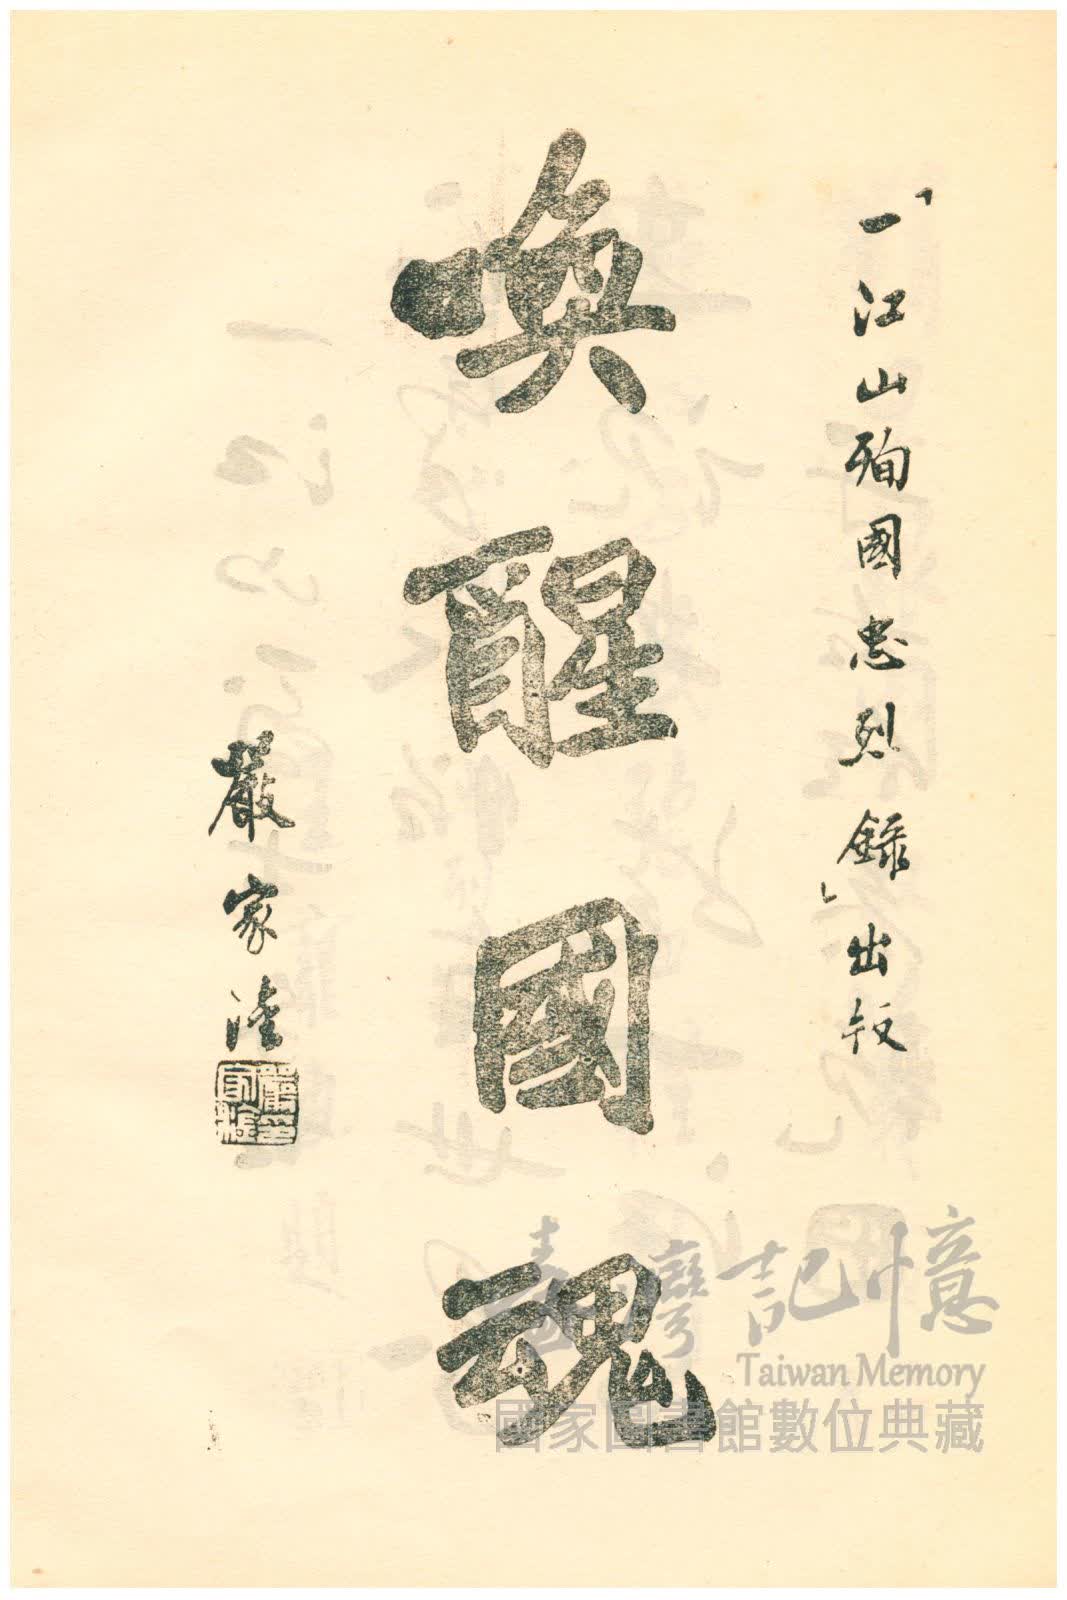 「一江山殉國忠烈錄」出版
喚醒國魂
嚴家淦
嚴印家淦
臺灣記憶
Taiwan Memory
國家圖書館數位典藏